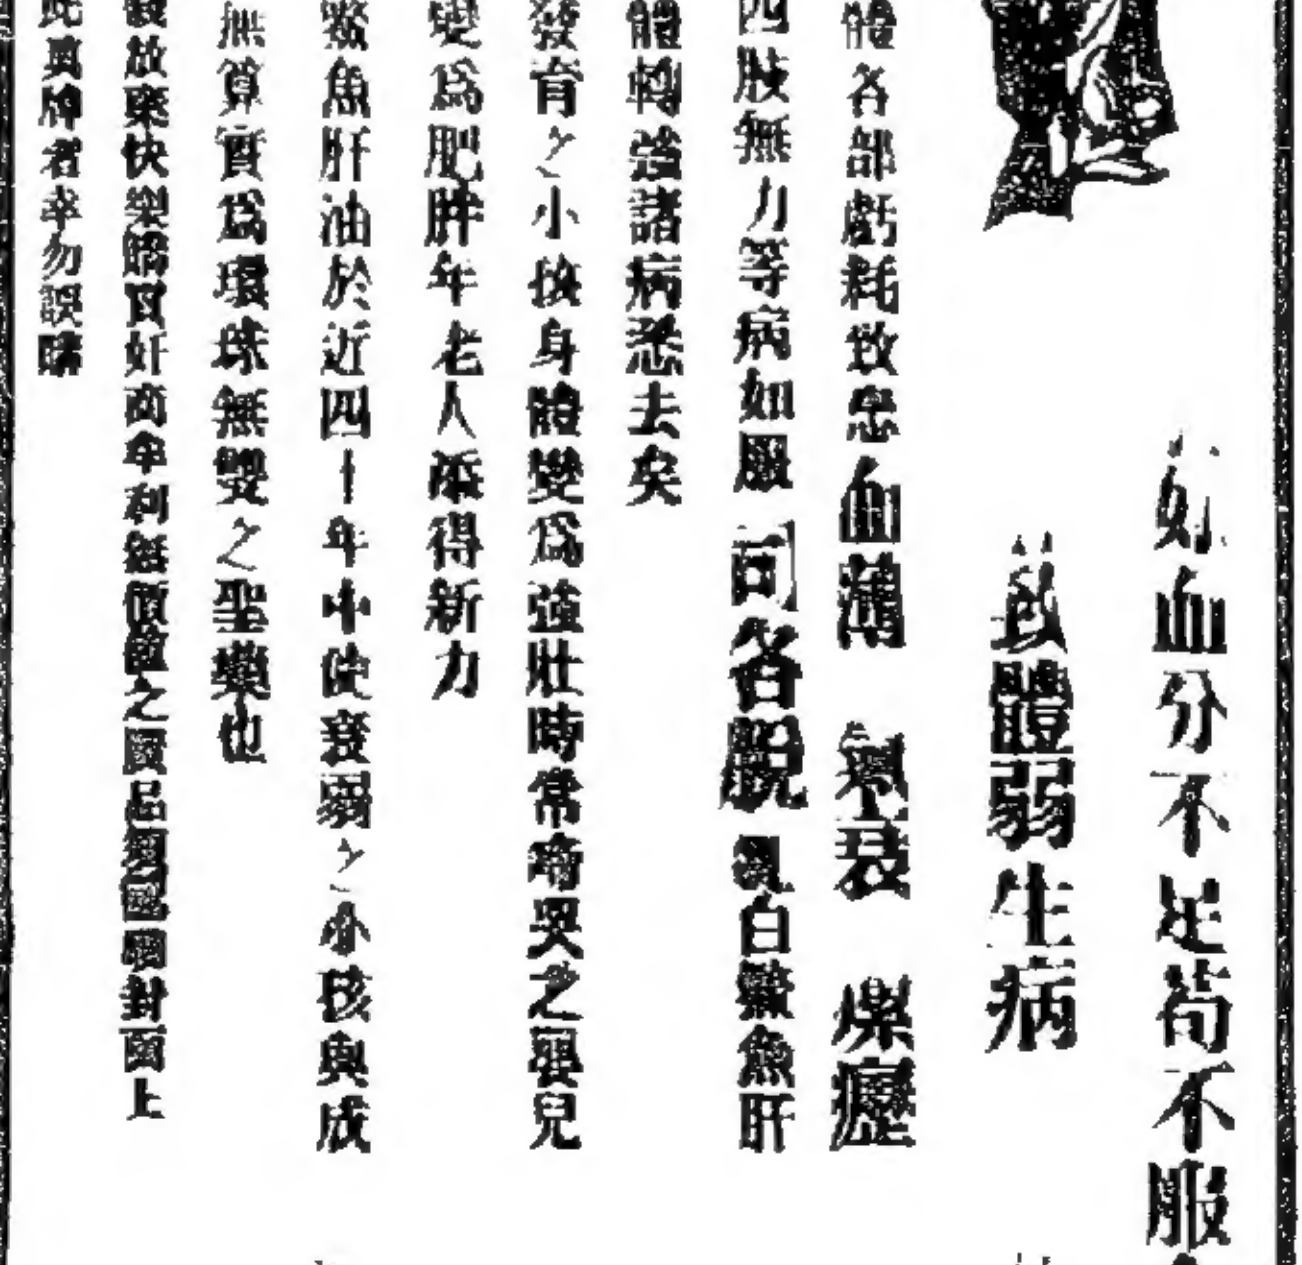 如血分不足苟不服
致體弱生病
體各部虧耗致患血薄 氣衰 瘰癧
四肢無力等病如服司各脫乳白鰵魚肝
體轉強諸病悉去矣
發育之小孩身體變爲強壯時常啼哭之嬰兒
變爲肥胖年老人添得新力
鰵魚肝油於近四十年中使衰弱之小孩與成
無算實爲環球無雙之聖藥也
放棄快樂購買奸商牟利無價值之品封面上
此真牌者幸勿誤購